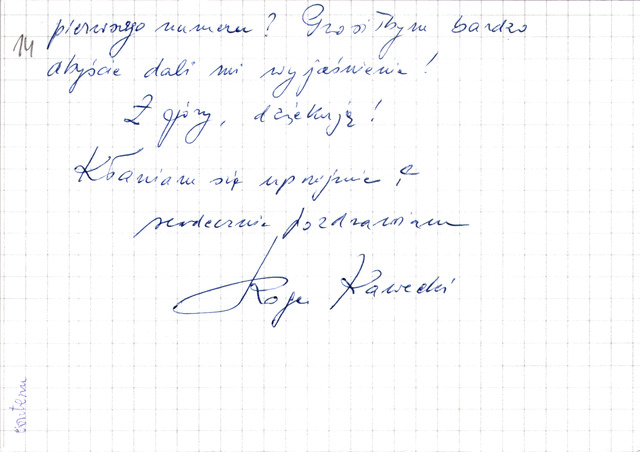 14
pierwszego numeru? Prosiłbym bardzo
abyście dali mi wyjaśnienie!
Z góry, dziękuję!
Kłaniam się uprzejmie &
serdecznie pozdrawiam
Roger Kawecki